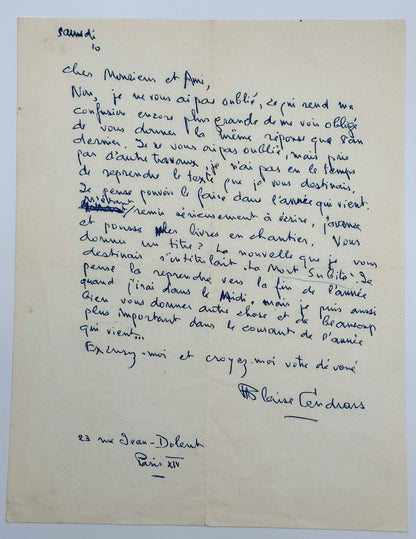 samedi
10
Cher Monsieur et Ami,
Non, je ne vous ai pas oublié, ce qui rend ma
confusion encore plus grande de me voir obligé
de vous donner la même réponse que l'an
dernier. Je ne vous ai pas oublié, mais pris
par d'autres travaux, je n'ai pas eu le temps
de reprendre le texte que je vous destinais.
Je pense pouvoir le faire dans l'année qui vient.
M'étant
remis sérieusement à écrire, j'avance
et pousse les livres en chantier. Vous
donner un titre? La nouvelle que je vous
destinais s'intitulait: La Mort Subite. Je
pense la reprendre vers la fin de l'année
quand j'irai dans le Midi, mais je puis aussi
bien vous donner autre chose et de beaucoup
plus important dans le courant de l'année
qui vient...
Excusez-moi et croyez-moi votre dévoué
Blaise Cendrars
23 rue Jean-Dolent
Paris XIV